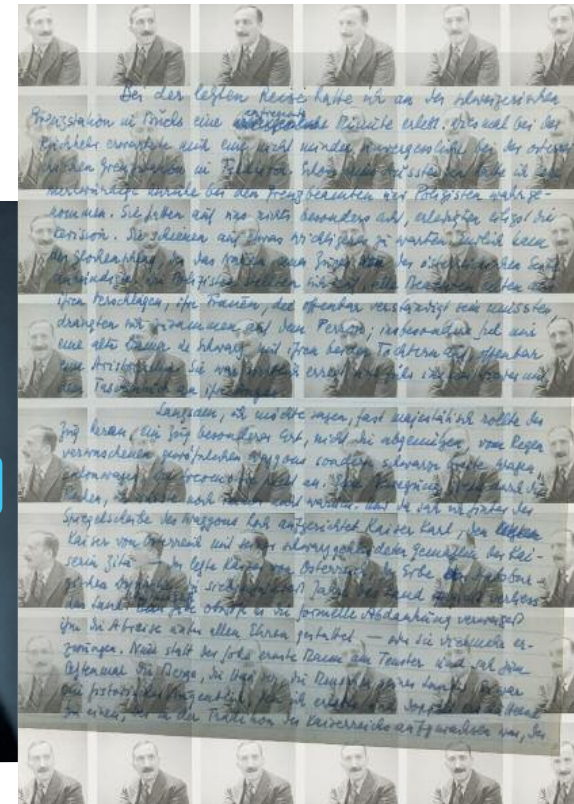 Bei der letzten Reise hatte ich an der schweizerischen
Grenzstation in Buchs eine erregende Minute erlebt. Diesmal bei der
Rückkehr erwartete mich eine nicht minder unvergessliche bei der österrei
chischen Grenzstation in Feldkirch. Schon beim Aussteigen hatte ich eine
merkwürdige Unruhe bei den Grenzbeamten und Polizisten wahrge-
nommen. Sie gaben auf uns nicht besonders acht, erledigten die
Revision. Sie schienen auf etwas wichtigeres zu warten. Endlich kam
der Glockenschlag, der das Nahen eines Zuges von der österreichischen Seite
ankündigte. Die Polizisten stellten sich auf, alle Beamten eilten aus
ihren Verschlägen, ihre Frauen, die offenbar verständigt sein mussten
drängten sich zusammen auf dem Perron; insbesondere fiel mir
eine alte Dame in Schwarz mit ihren beiden Töchtern auf, offenbar
eine Aristokratin. Sie war sichtlich erregt und
dem Taschentuch an ihre Augen.
Langsam, ich möchte sagen, fast majestätisch rollte der
Zug heran, ein Zug besonderer Art, nicht die abgenützten, vom Regen
verwaschenen gewöhnlichen Waggons sondern schwarze, breite Wagen,
Salonwagen. Die Locomotive hielt an. Eine Bewegung ging durch die
Reihen, ich wusste noch immer nicht warum. Und da sah ich hinter der
Spiegelscheibe des Waggons hoch aufgerichtet Kaiser Karl, den letzten
Kaiser von Österreich mit seiner schwarzgekleideten Gemahlin, der Kai-
serin Zita. Der letzte Kaiser von Österreich, der Erbe der Habsbur-
gischen Dynastie, die siebenhundert Jahre das Land verliess
das Land. obwohl er die formelle Abdankung verweigert
ihm die Abreise unter allen Ehren gestattet — oder sie vielmehr er-
zwungen. Nun stand der hohe ernste Mann am Fenster und sah zum
letztenmal die Berge, die Häuser, die Menschen seines Landes. Es war
ein historischer Augenblick, den ich erlebte und doppelt
für einen, der in der Tradition des Kaiserreichs aufgewachsen war, der